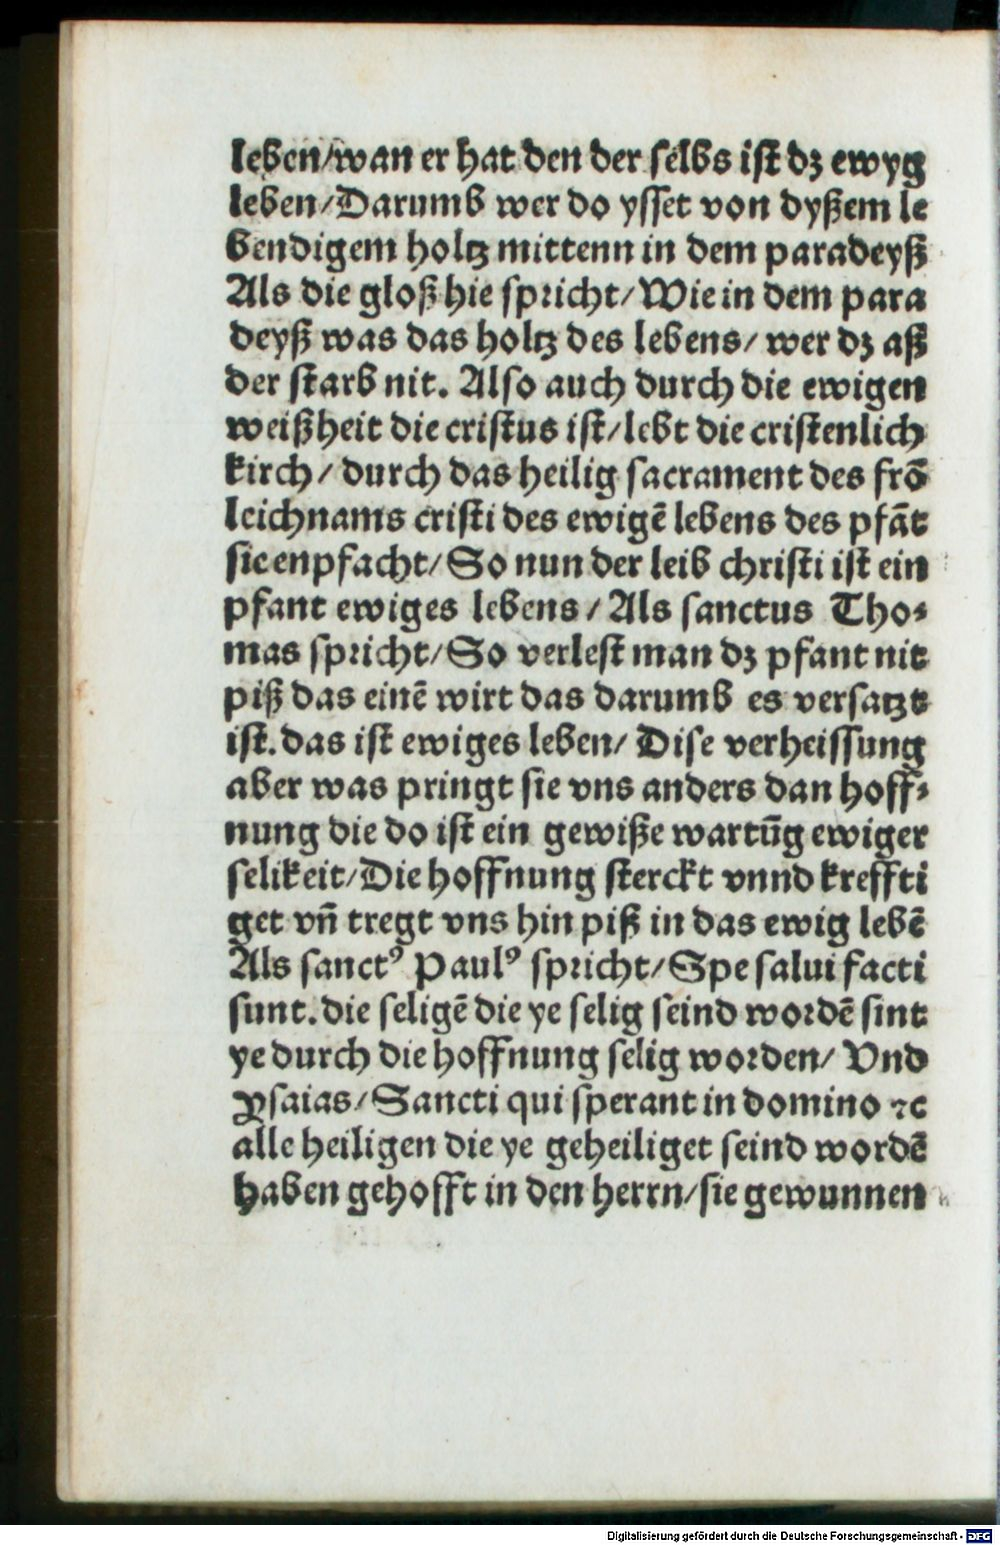 leben/wan er hat den der selbs ist dz ewyg
leben/Darumb wer do ysset von dyßem le
bendigem holtz mittenn in dem paradeyß
Als die gloß hie spricht/Wie in dem para
deyß was das holtz des lebens/ wer dz aß
der starb nit. Also auch durch die ewigen
weißheit die cristus ist/lebt die cristenlich
kirch/ durch das heilig sacrament des frō
leichnams cristi des ewigē lebens des pfāt
sie enpfacht/So nun der leib christi ist ein
pfant ewiges lebens/Als sanctus Tho⸗
mas spricht/So verlest man dz pfant nit
piß das einē wirt das darumb es versatzt
ist. das ist ewiges leben/ Dise verheissung
aber was pringt sie vns anders dan hoff⸗
nung die do ist ein gewiße wartūg ewiger
selikeit/Die hoffnung sterckt vnnd kreffti
get vñ tregt vns hin piß in das ewig lebē
Als sanctꝰ Paulꝰ spricht/Spe salui facti
sunt. die seligē die ye selig seind wordē sint
ye durch die hoffnung selig worden/ Vnd
Ysaias/Sancti qui sperant in domino ⁊c
alle heiligen die ye geheiliget seind wordē
haben gehofft in den herrn/sie gewunnen
Digitalisierung gefördert durch die Deutsche Forschungsgemeinschaft - DFG